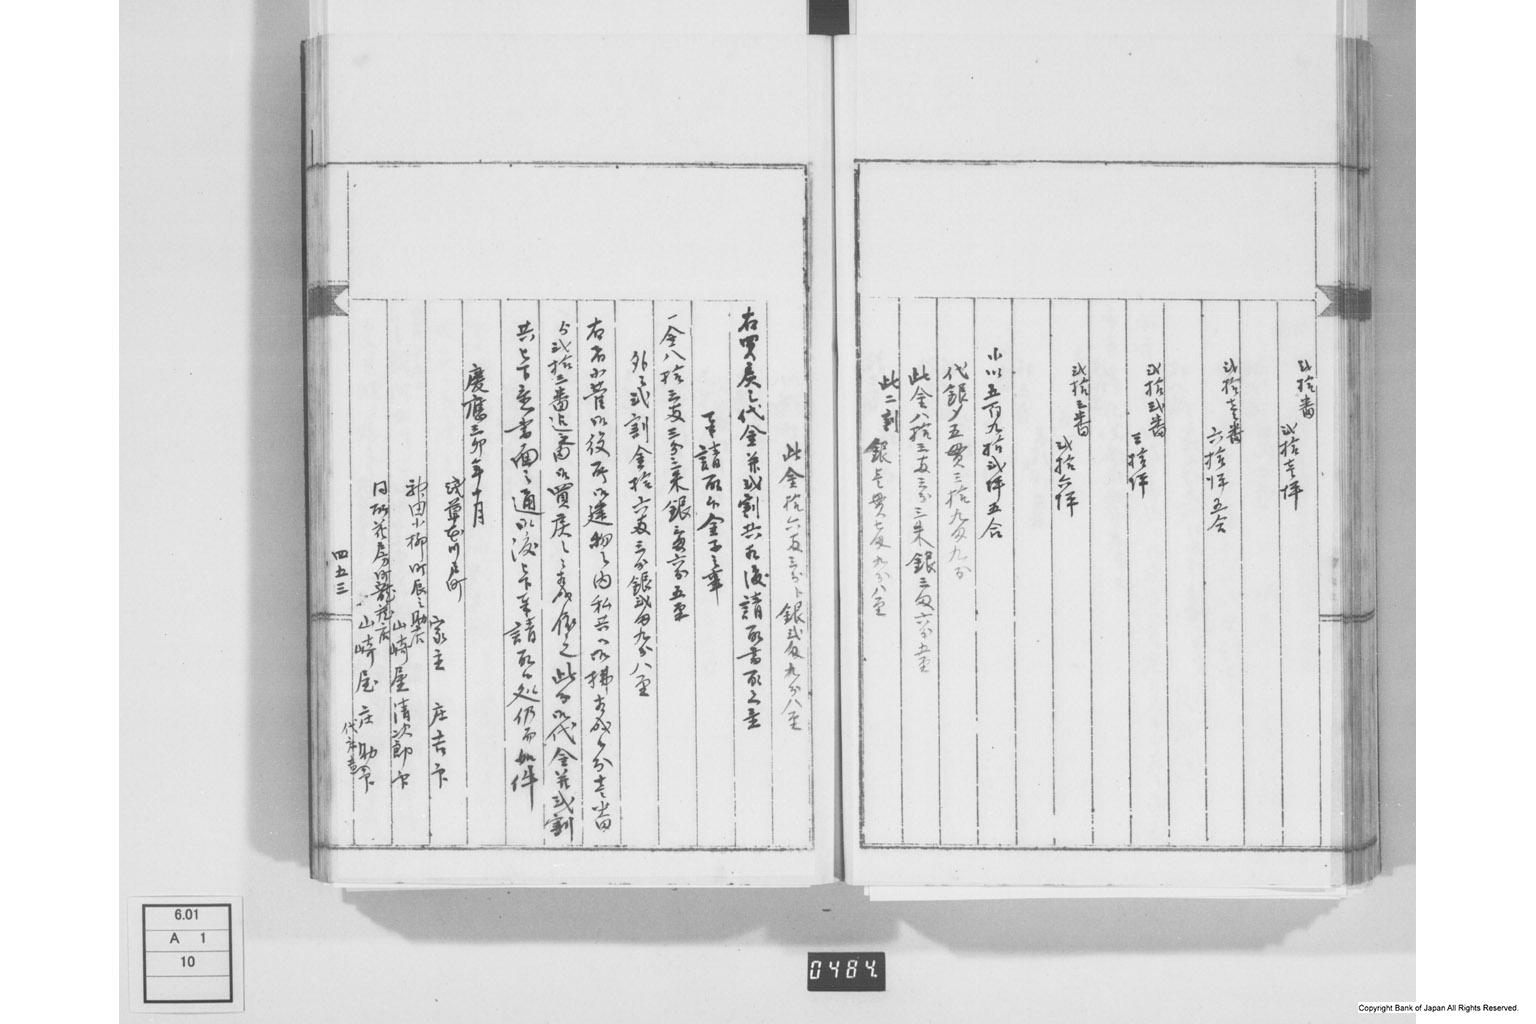 弐拾番
弐拾壱坪
弐拾壱番
六拾坪五合
弐拾弐番
三拾坪
弐拾三番
弐拾六坪
小以五百九拾弐坪五合
代銀〆五貫三拾九匁九分
此金八拾三両三分三朱銀三匁六分五厘
此二割
銀壱貫七匁九分八厘
此金拾六両三分ト銀弐匁九分八厘
右買戻之代金并弐割共相渡請取書取之置
奉請取候金子之事
一金八拾三両三分三朱銀三匁六分五厘
外ニ弐割金拾六両三分銀弐匁九分八厘
右者小菅御役所御建物之内私共江御払相成候分壱番
ゟ弐拾三番迄此番御買戻之相成候ニ付此分御代金并弐割
共被下置書面之通御渡被下奉請取候処仍而如件
慶應三卯年十月
浅草元川戸町
家主 庄吉印
神田小柳町辰之助店
山崎屋清次郎印
同所花房町龍蔵店
山崎屋庄助印
代文蔵
四五三
0484.
6.01
A 1
10
Copyright Bank of Japan All Rights Reserved.